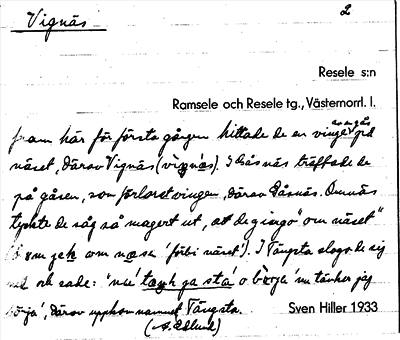 Vignäs
2
Resele s:n
Ramsele och Resele tg., Västernorrl. l.
fram här för första gången hittade de en vinge av en gås på
näset, därav Vignäs (vignäs). I Gåsnäs träffade de
på gåsen, som förlorat vingen, därav Gåsnäs. Omnäs
tyckte de såg så magert ut, att de gingo "om näset"
om näset 'förbi näset'). I Tängsta slogo de sig
ned och sade: "nu tänker jag
börja', därav uppkom namnet Tängsta.
(A. Edlund)
Sven Hiller 1933